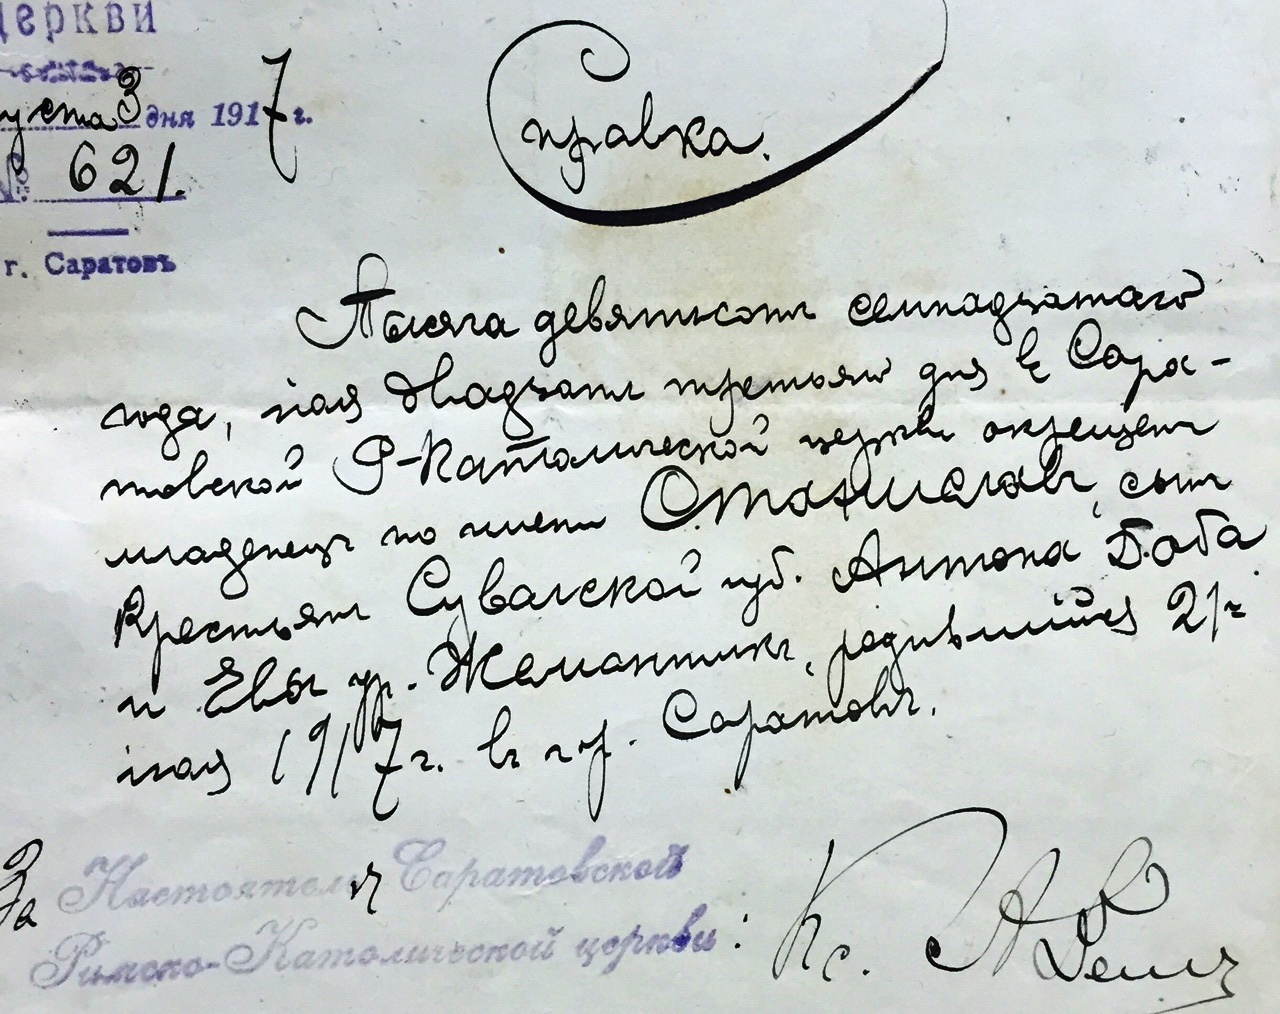 церкви
уста 3 дня 1917 г.
№ 621.
г. Саратовъ
Справка.
Тысяча девятьсотъ семнадцатаго
года, мая двадцать третьяго дня въ Сара-
товской Р-Католической церкви окрещенъ
младенецъ по имени Станиславъ, сынъ
Крестьянъ Сувалской губ. Антона Боба
и Евы ур. Жемантикъ, родившійся 21го
мая 1917 г. въ гор. Саратовѣ.
За Настоятеля Саратовской
Римско-Католической церкви:
Кс. А.